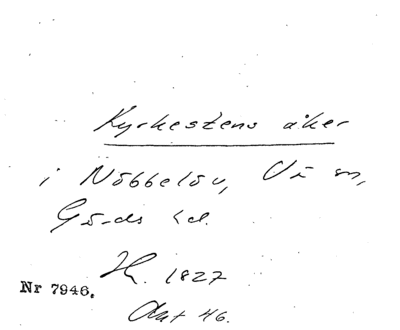 Kyrkestens åker
i Nöbbelöv, Vä sn,
Gärds hd.
Hf. 1827
Ant 46.
Nr 7946.